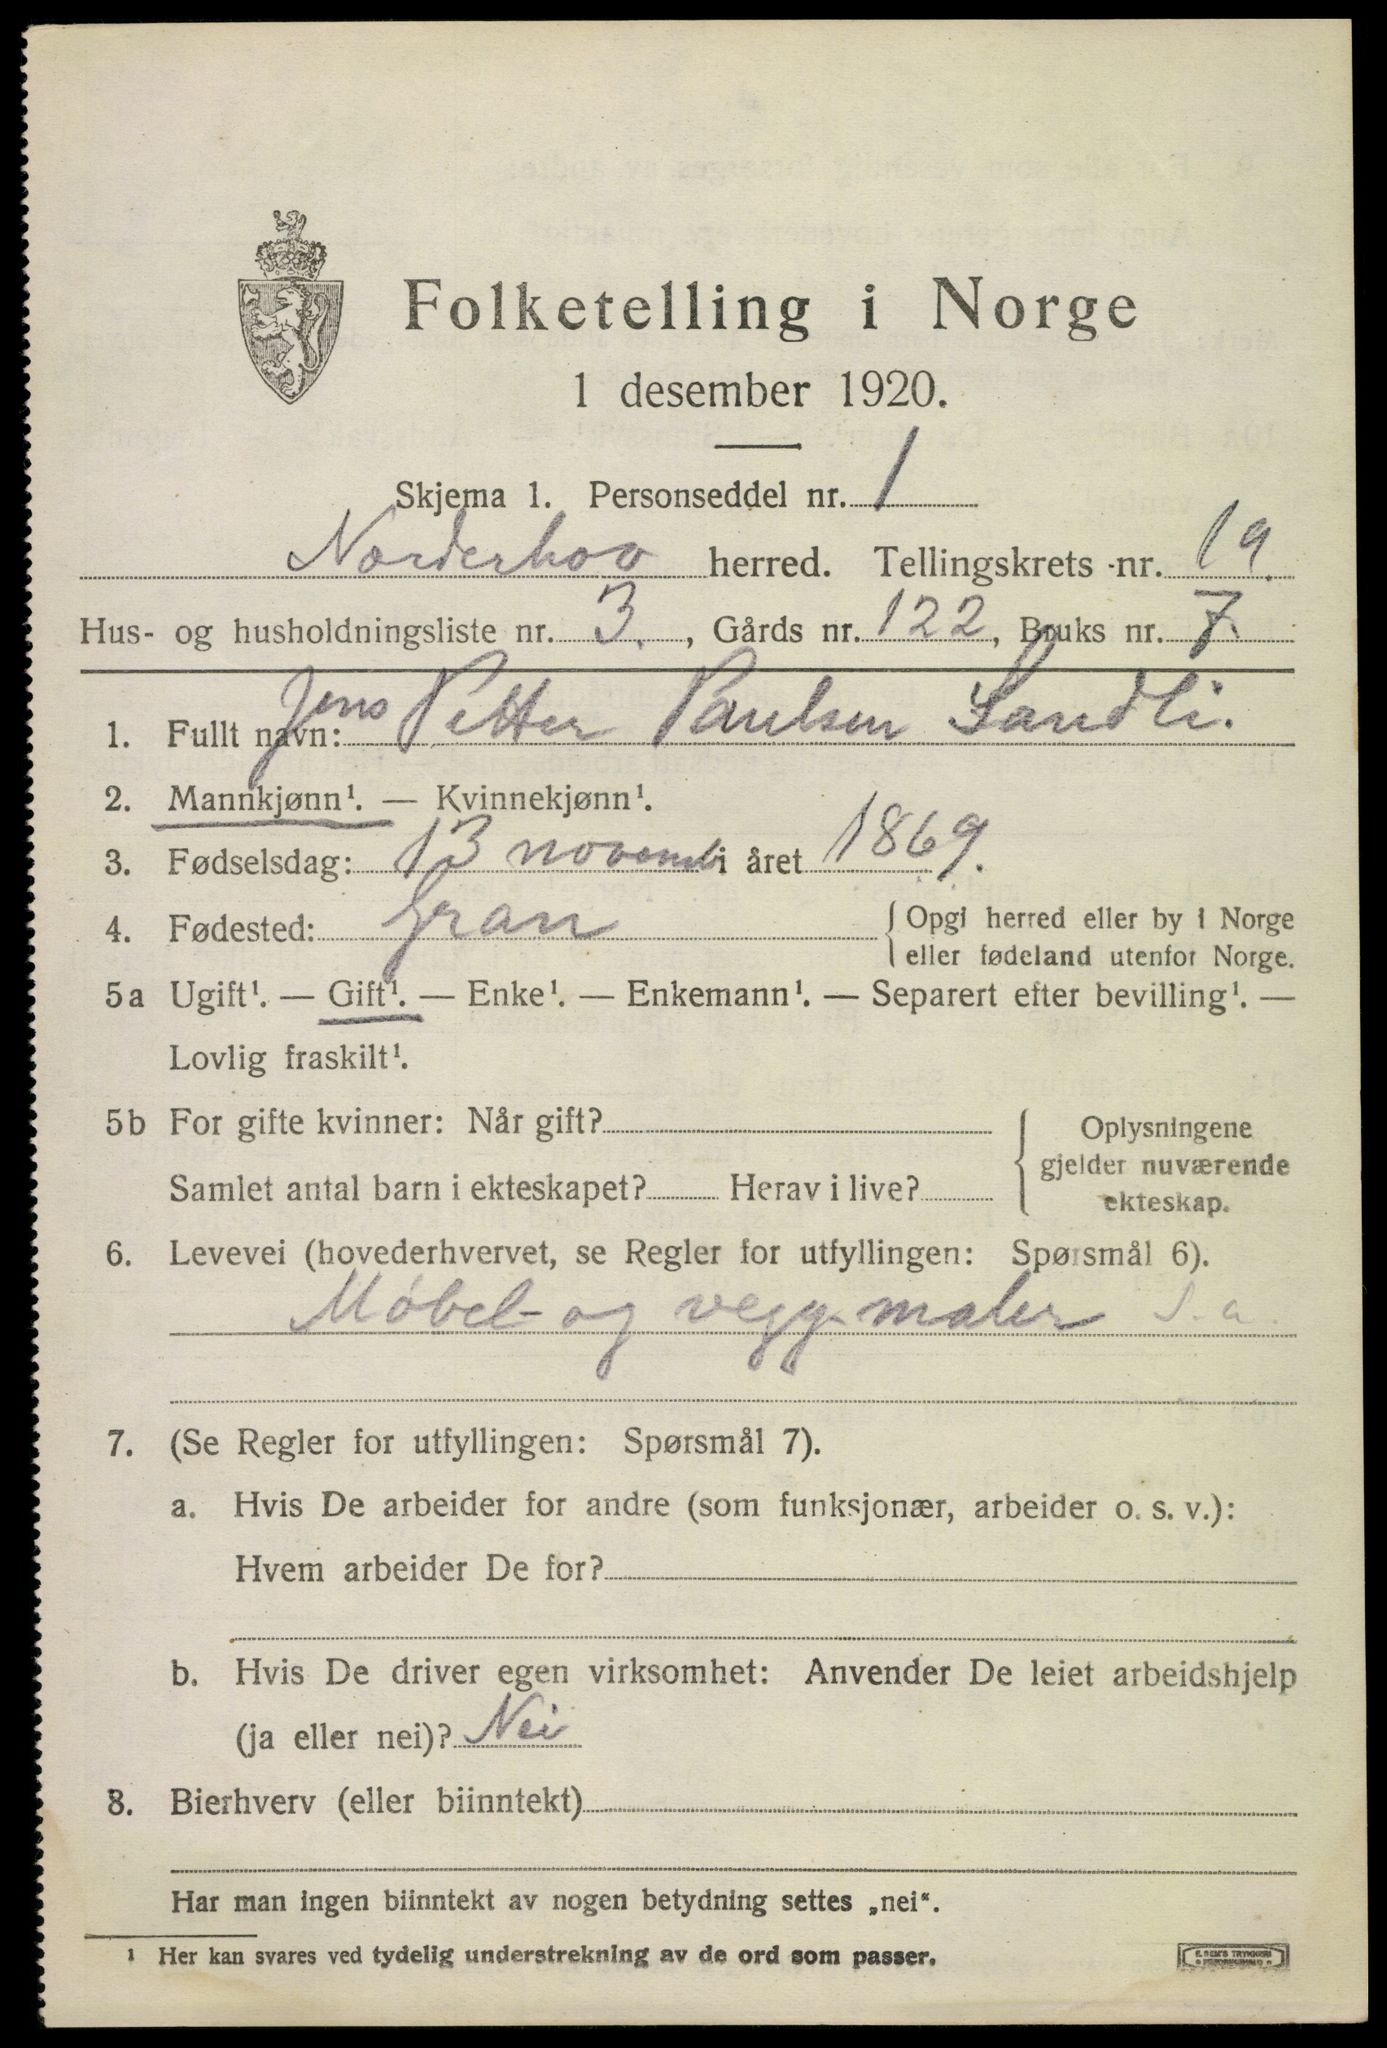 Folketelling i Norge
1 desember 1920.
Skjema 1. Personseddel nr. 1
Norderhov herred. Tellingskrets nr. 19.
Hus- og husholdningsliste nr. 3. , Gårds nr. 122, Bruks nr. 7.
1. Fullt navn: Jens Petter Paulsen Sandli.
2. Mannkjønn¹. — Kvinnekjønn¹.
3. Fødselsdag: 13 novemb i året 1869.
4. Fødested: Gran { Opgi herred eller by i Norge
eller fødeland utenfor Norge.
5a Ugift¹. — Gift¹. — Enke¹. — Enkemann¹. — Separert efter bevilling¹. —
Lovlig fraskilt¹.
5b For gifte kvinner: Når gift? { Oplysningene
gjelder nuværende
Samlet antal barn i ekteskapet? Herav i live?
ekteskap.
6. Levevei (hovederhvervet, se Regler for utfyllingen: Spørsmål 6).
Møbel- og vegg-maler s. a.
7. (Se Regler for utfyllingen: Spørsmål 7).
a. Hvis De arbeider for andre (som funksjonær, arbeider o. s. v.):
Hvem arbeider De for?
b. Hvis De driver egen virksomhet: Anvender De leiet arbeidshjelp
(ja eller nei)? Nei
8. Bierhverv (eller biinntekt)
Har man ingen biinntekt av nogen betydning settes „nei“.
¹ Her kan svares ved tydelig understrekning av de ord som passer.